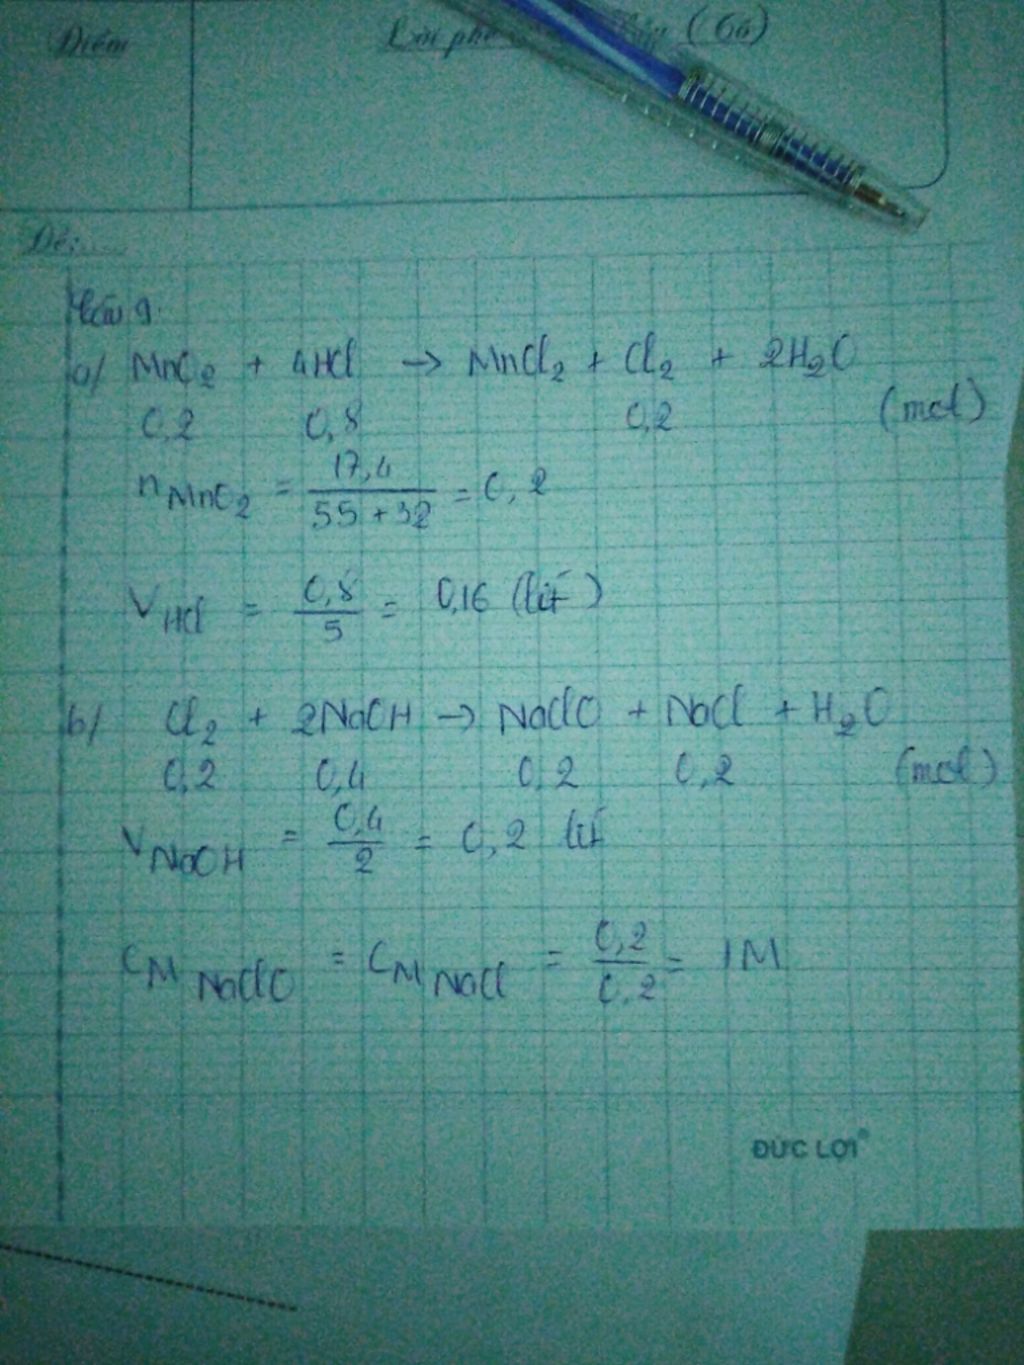 Điểm
Lời phê (Gô)
Đề:......
Câu 9.
a/ MnO2 + 4HCl → MnCl2 + Cl2 + 2H2O
0,2 0,8 0,2 (mol)
nMnO2 = 17,4 / 55 + 32 = 0,2
VHCl = 0,8 / 5 = 0,16 (lít)
b/ Cl2 + 2NaOH → NaClO + NaCl + H2O
0,2 0,4 0,2 0,2 (mol)
VNaOH = 0,4 / 2 = 0,2 lít
CM NaClO = CM NaCl = 0,2 / 0,2 = 1M
ĐỨC LỢI®